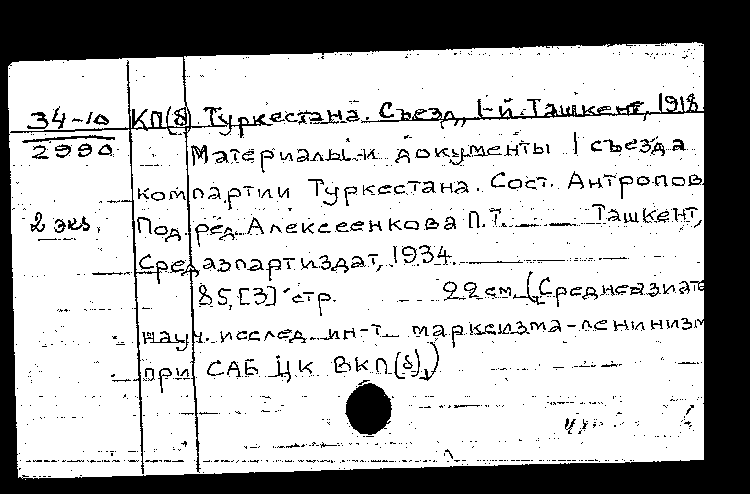 34-10 КП(б) Туркестана. Съезд, I-й. Ташкент, 1918.
2990 Материалы и документы I съезда
компартии Туркестана. Сост. Антропов
2 экз. Под ред. Алексеенкова П.Т. Ташкент,
Средазпартиздат, 1934.
85,[3] стр. 22 см. (Среднеазиатс
науч. исслед. ин-т марксизма-ленинизм
при САБ ЦК ВКП(б).)